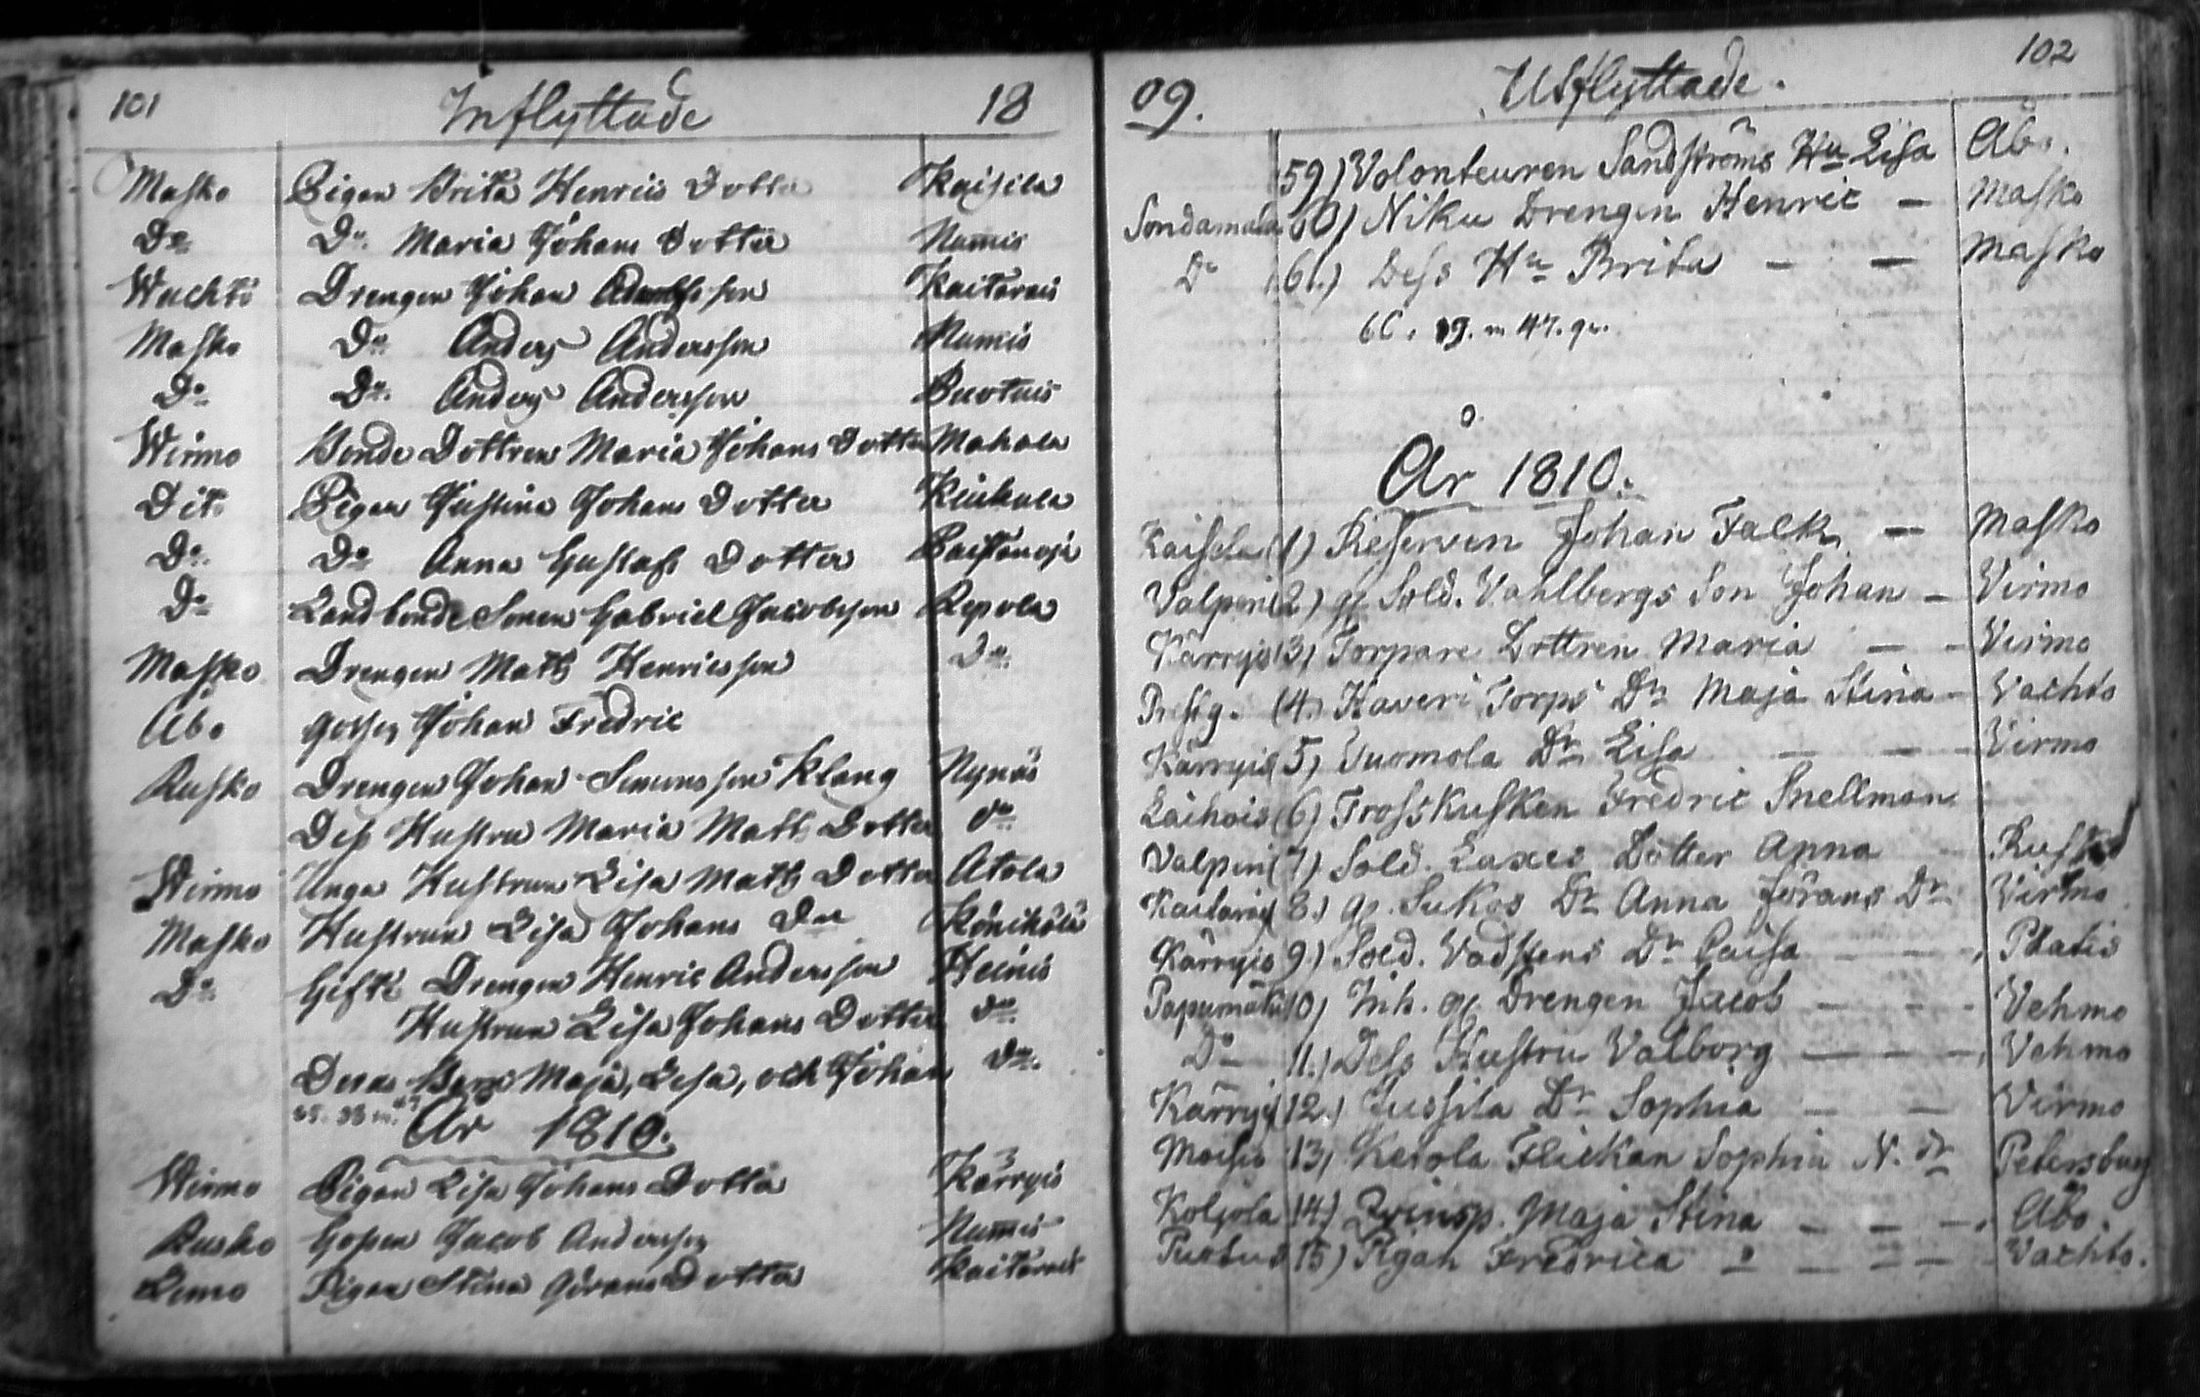 101 Inflyttade 18
Masko Pigan Brita Henrics Dotter Kaisela
Do Do Maria Johans Dotter Numis
Wachto Drengen Johan Adamsson Kaitarais
Masko Do Anders Andersson Numis
Do Do Anders Andersson Puotuis
Wirmo Bonde Dottren Maria Johans Dotter Mahala
Dito Pigan Justina Johans Dotter Kiukula
Do Do Anna Gustafs Dotter Paistanoja
Do Landbonde Sonen Gabriel Jacobsson Repola
Masko Drengen Mats Henricsson Do
Åbo Gossen Johan Fredric
Rusko Drengen Johan Simonsson Klang Nynäs
Dess Hustru Maria Mats Dotter do
Wirmo Unga Hustrun Lisa Mats Dotter Atola
Masko Hustrun Lisa Johans Dr Könikölä
Do Gifte Drengen Henric Andersson Heinis
Hustrun Lisa Johans Dotter do
Deras Barn Maja, Lisa, och Johan do
År 1810.
Wirmo Pigan Lisa Johans Dotter Kärryis
Rusko Gossen Jacob Andersson Numis
Lemo Pigan Stina Görans Dotter Kaitarais
09. Utflyttade. 102
59) Volonteuren Sandströms Hu Lisa Åbo.
Sondamala 60) Niku Drengen Henric — Masko
Do 61.) Dess Hu Brita — — Masko
År 1810.
Kaisela (1) Reserven Johan Falk — Masko
Valperi (2) gf. Sold. Vahlbergs Son Johan — Virmo
Kärryis (3) Torpare Dottren Maria — — Virmo
Prestg. (4.) Haveri Torps Dr Maja Stina — Vachto
Kärryis (5) Vuomola Dr Lisa — — Virmo
Laihois (6) Trosskusken Fredric Snellman
Valperi (7) Sold. Laxes Dotter Anna Rusko
Kaitarais 8.) gf. Sukos Dr Anna Jörans Dr Virmo
Kärryis 9.) Sold. Vadstens Dr Caisa — — Pikatis
Papumäki 10) Inh. gf. Drengen Jacob — — — Vehmo
Do 11.) Dess Hustru Valborg — — — Vehmo
Kärryis 12.) Jussila Dr Sophia — — Virmo
Moisio 13) Ketola Flickan Sophia N. Dr Petersburg
Koljola 14.) Qvinsp. Maja Stina — — — Åbo.
Puotuis 15) Pigan Fredrica — — — — Vachto.